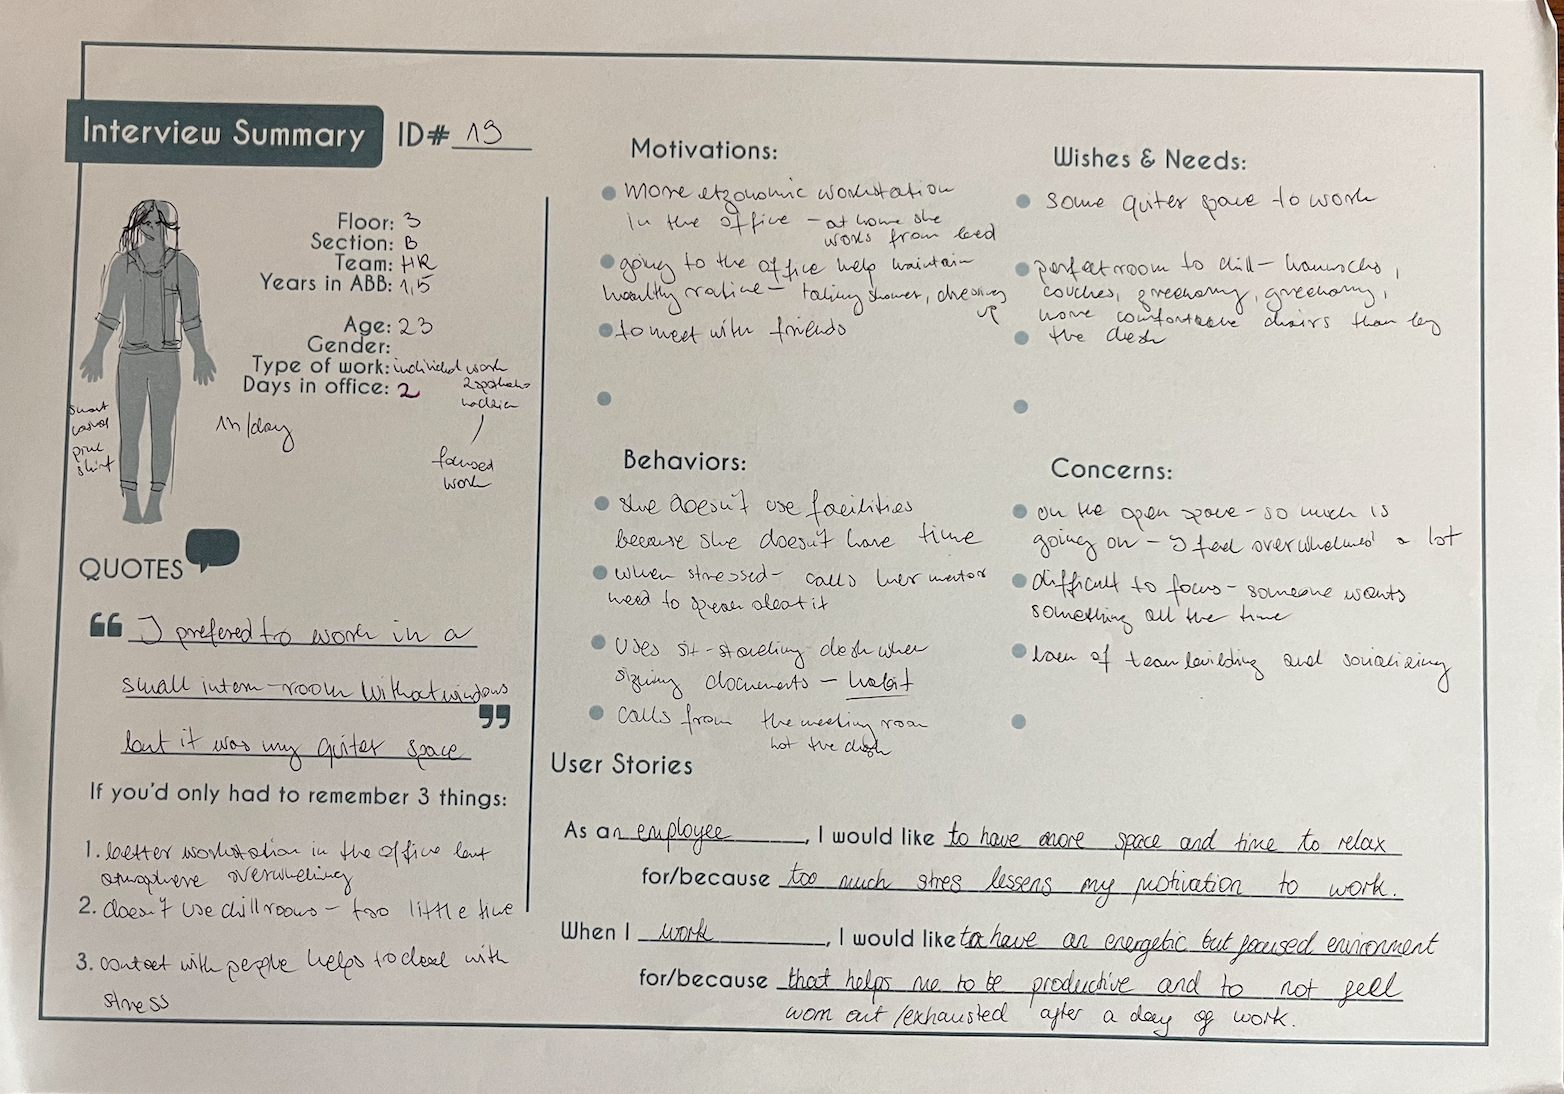 Interview Summary ID# 19
Floor: 3
Section: B
Team: HR
Years in ABB: 1,5
Age: 23
Gender:
Type of work: individual work
Days in office: 2
2 spotkania
1h/day
focused
work
smart
casual
pink
shirt
QUOTES
“ I prefered to work in a
small intern-room without windows
but it was my quiter space ”
If you'd only had to remember 3 things:
1. better workstation in the office but
atmosphere overwhelming
2. doesn't use chillrooms - too little time
3. contact with people helps to deal with
stress
Motivations:
more ergonomic workstation
in the office - at home she
works from bed
going to the office help maintain
healthy routine - taking shower, dressing
up
to meet with friends
Wishes & Needs:
some quiter space to work
perfect room to chill - hammocks,
couches, greenery, greenery,
more comfortable chairs than by
the desk
Behaviors:
she doesn't use facilities
because she doesn't have time
when stressed - calls her mentor
need to speak about it
uses sit-standing desk when
signing documents - habit
calls from the meeting room
not the desk
Concerns:
on the open space - so much is
going on - I feel overwhelmed a lot
difficult to focus - someone wants
something all the time
lack of team building and socializing
User Stories
As an employee, I would like to have more space and time to relax
for/because too much stres lessens my motivation to work.
When I work, I would like to have an energetic but focused environment
for/because that helps me to be productive and to not feel
worn out /exhausted after a day of work.